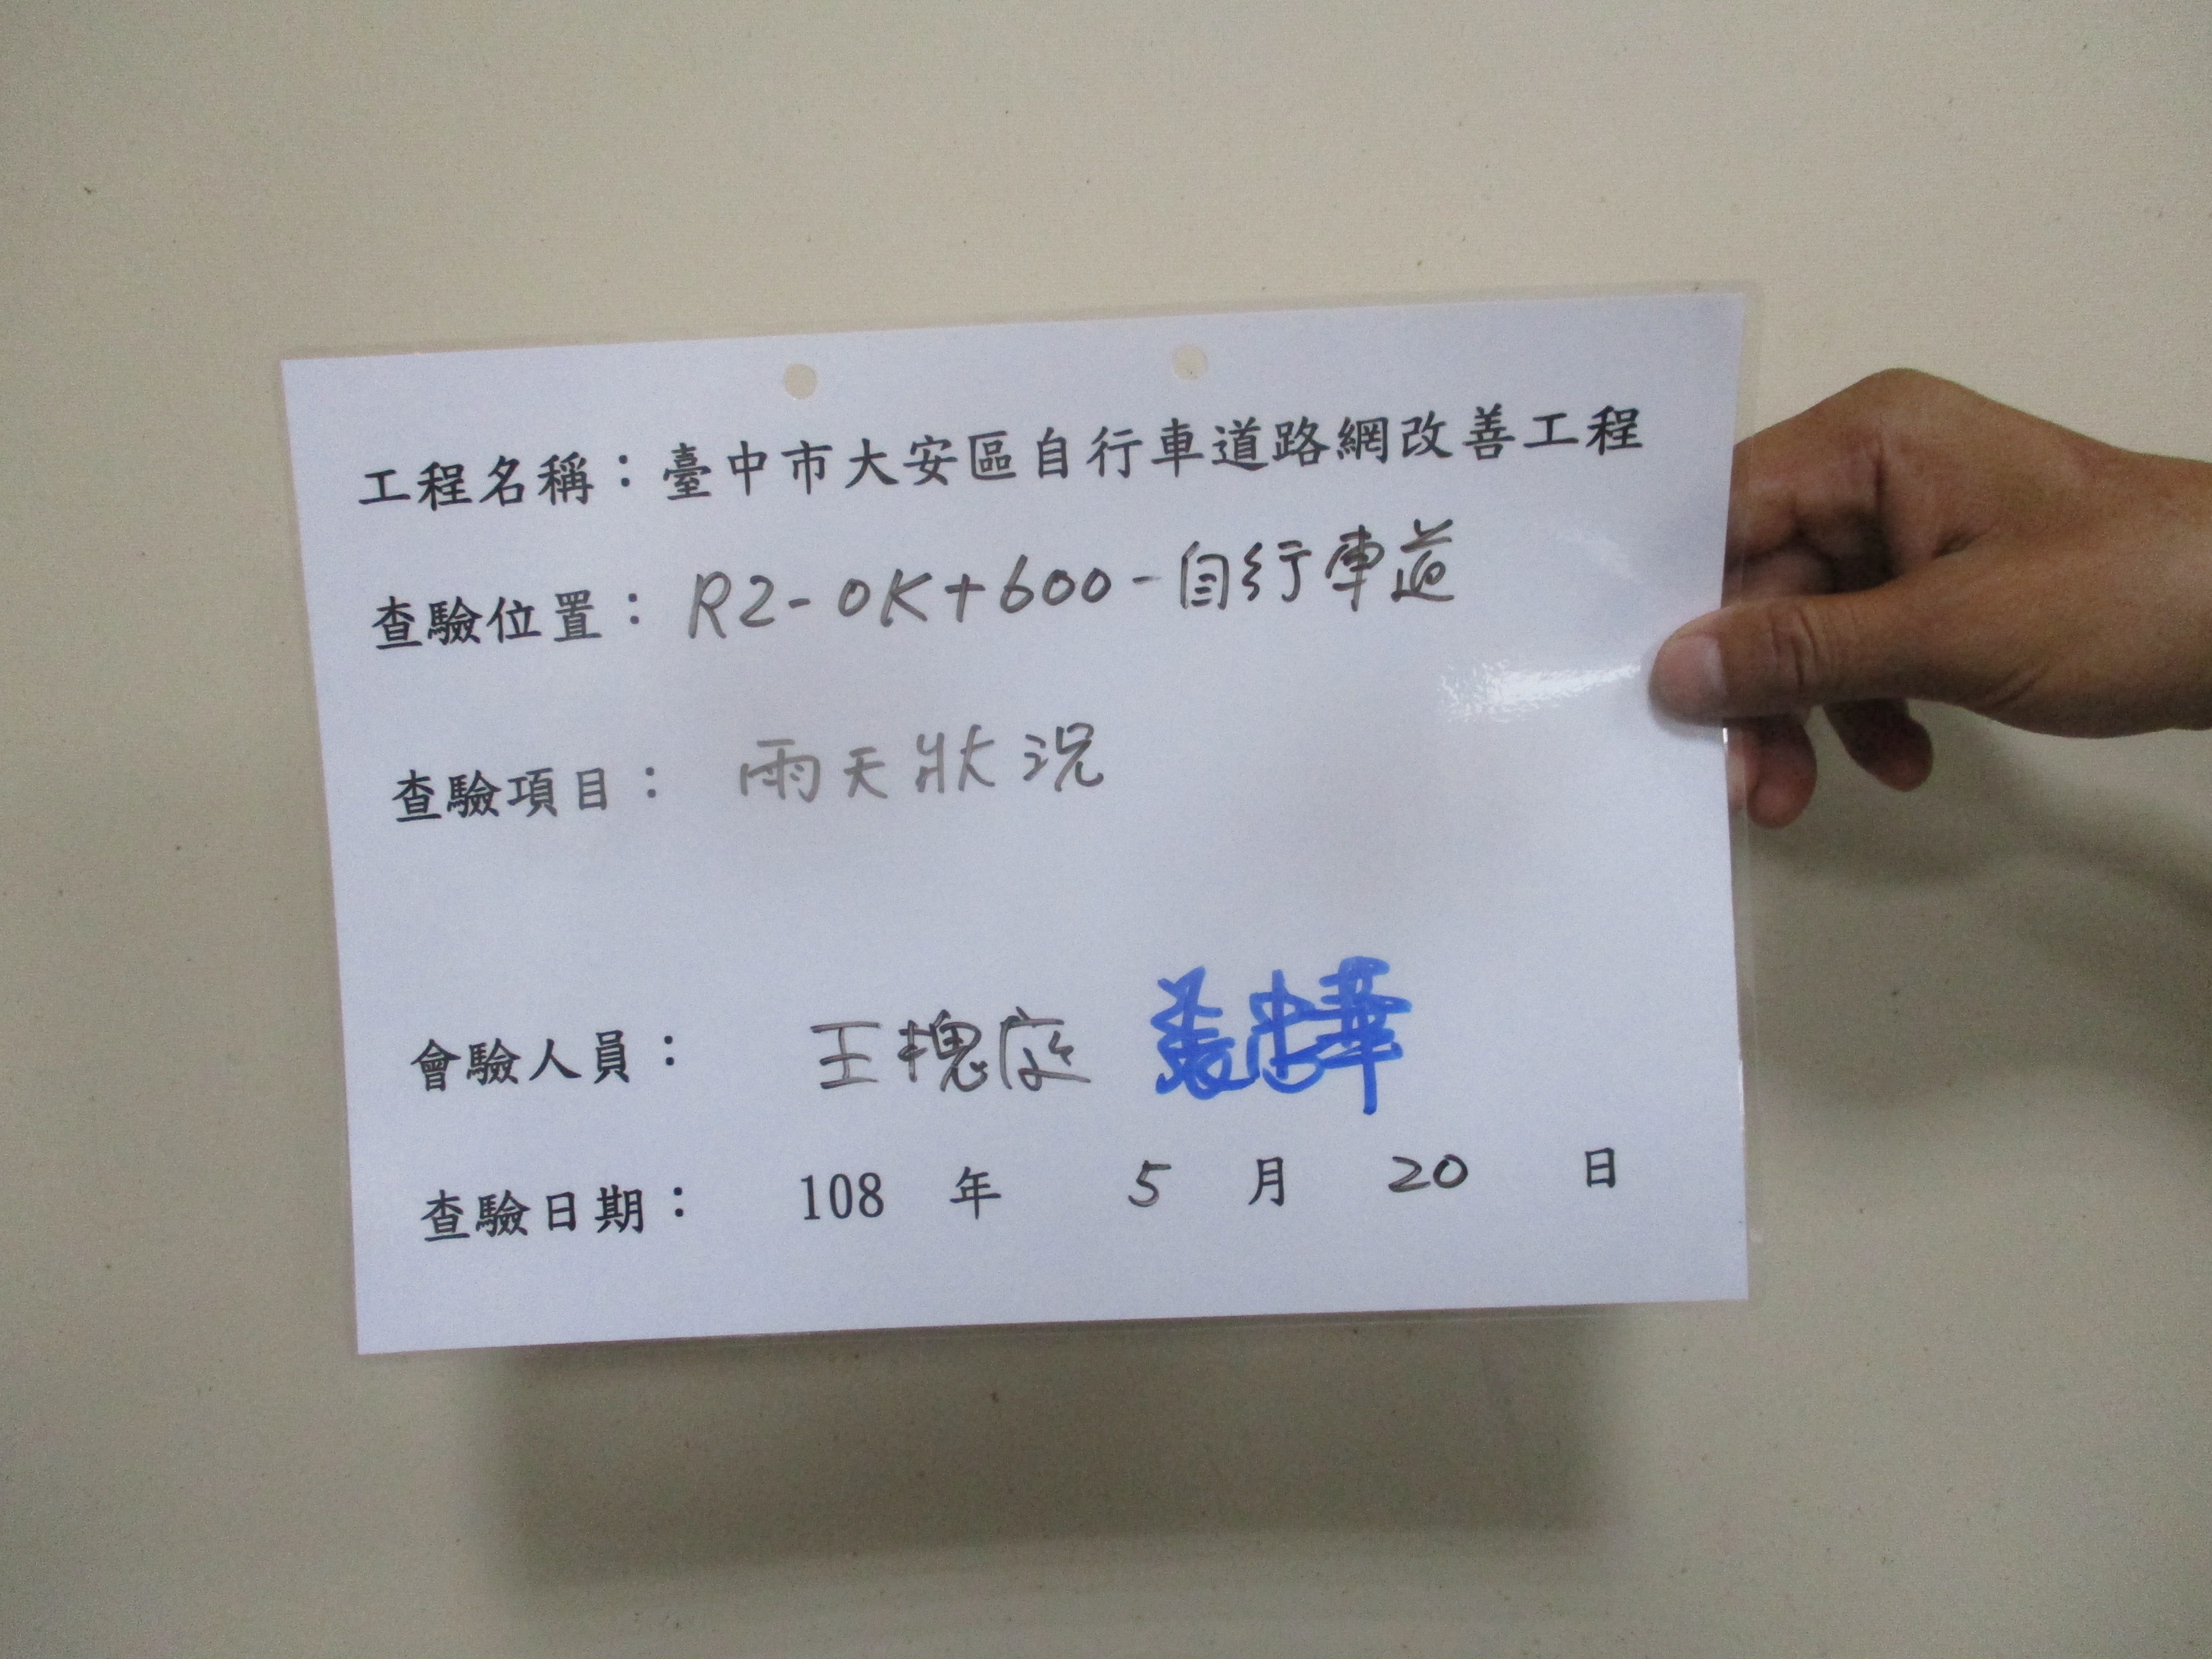 工程名稱：臺中市大安區自行車道路網改善工程
查驗位置：R2-0K+600-自行車道
查驗項目：雨天狀況
會驗人員：王槐庭
查驗日期：108 年 5 月 20 日